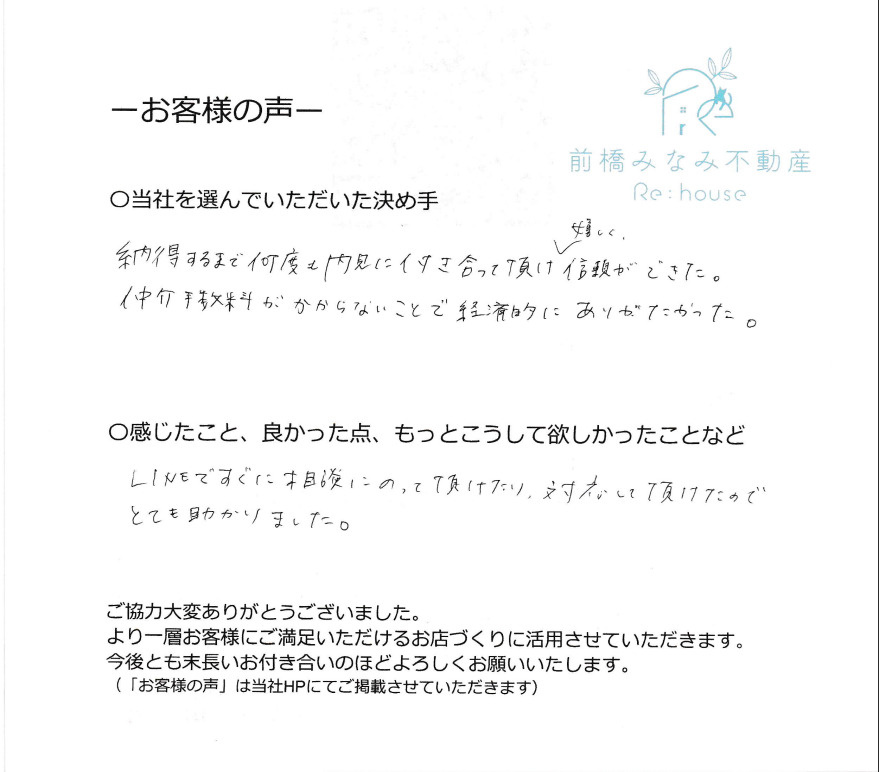 ーお客様の声ー
前橋みなみ不動産
Re:house
〇当社を選んでいただいた決め手
嬉しく、
納得するまで何度も内見に付き合って頂け信頼ができた。
仲介手数料がかからないことで経済的にありがたかった。
〇感じたこと、良かった点、もっとこうして欲しかったことなど
LINEですぐに相談にのって頂けたり、対応して頂けたので
とても助かりました。
ご協力大変ありがとうございました。
より一層お客様にご満足いただけるお店づくりに活用させていただきます。
今後とも末長いお付き合いのほどよろしくお願いいたします。
（「お客様の声」は当社HPにてご掲載させていただきます）